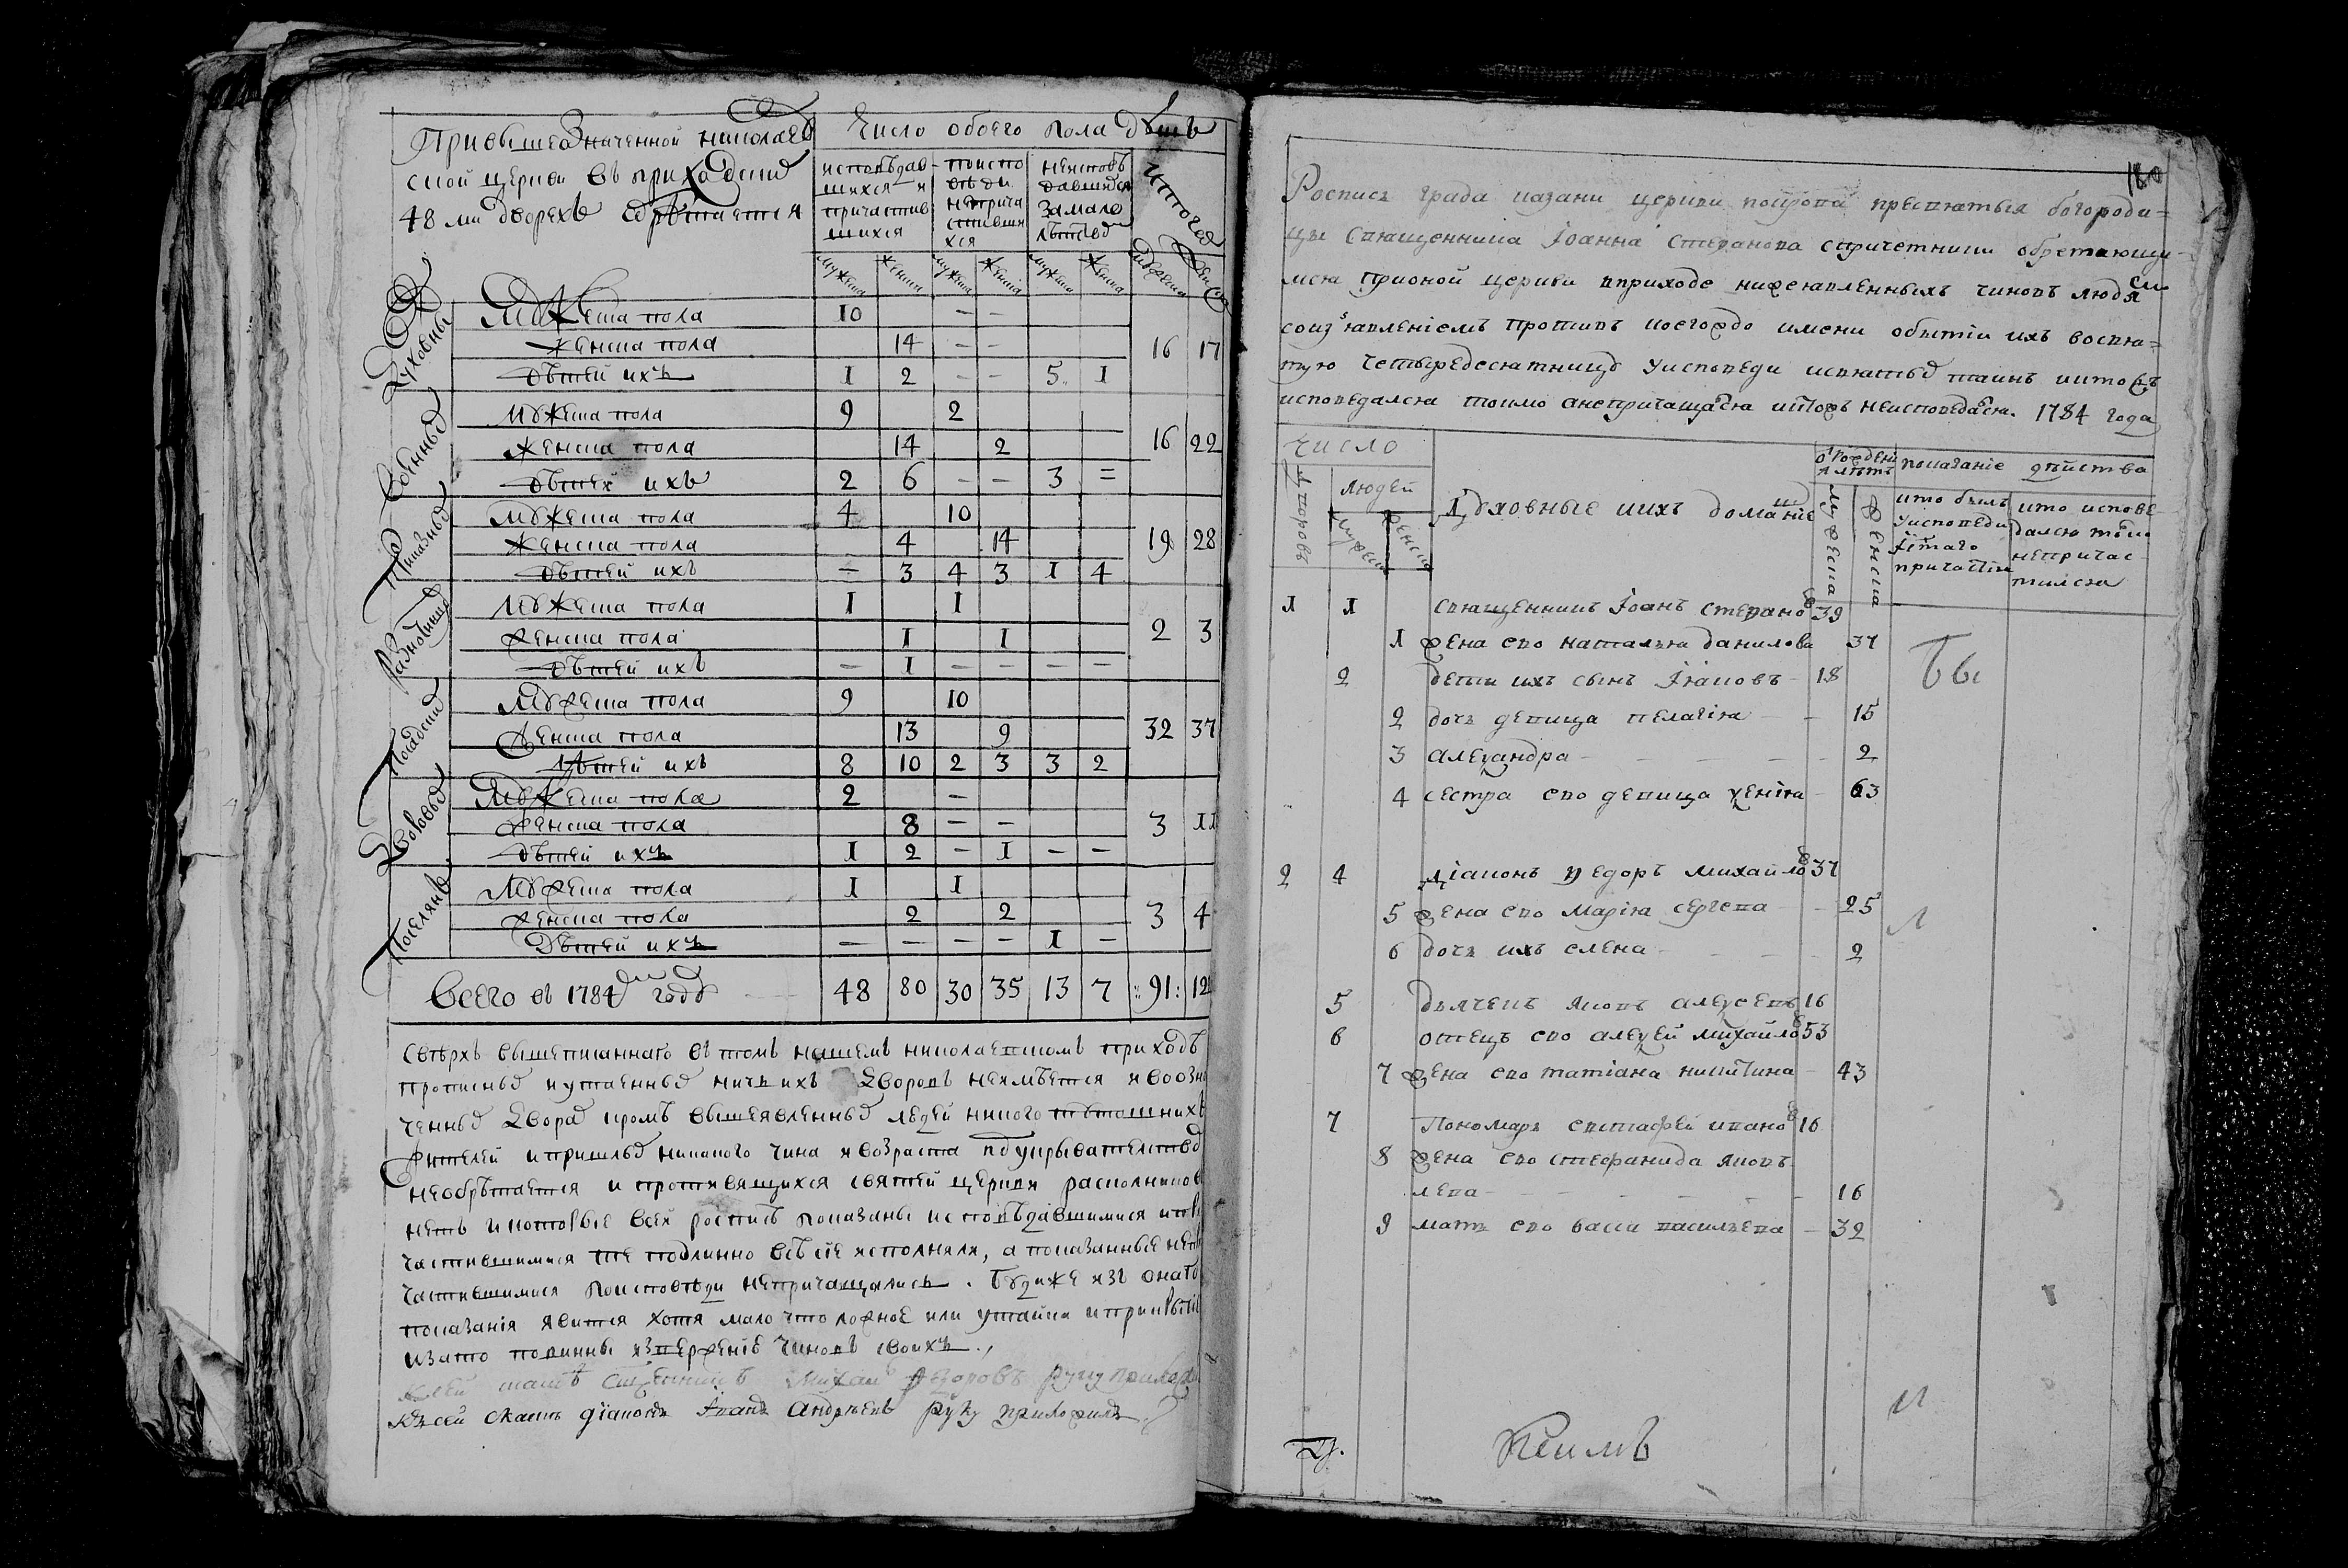 При вышеозначенной николаев
ской церкви въ приходскихъ
48 ми дворехъ обретается
Число обоего пола душъ
исповедав-
шихся и
причастив
шихся
поиспо
веди
неприча
стивши
хся
неисповѣ
давшихся
за мало
летсвомъ
итого
мужеска
женска
мужеска
женска
мужеска
женска
мужеска
женска
Духовныхъ
Мужеска пола 10 - -
женска пола 14 - - 16 17
детей ихъ 1 2 - - 5 1
Военныхъ
мужеска пола 9 2
женска пола 14 2 16 22
детей ихъ 2 6 - - 3 =
Приказныхъ
мужеска пола 4 10
женска пола 4 14 19 28
детей ихъ - 3 4 3 1 4
Разночинцовъ
мужеска пола 1 1
женска пола 1 1 2 3
детей ихъ - 1 - - - -
Посадских
мужеска пола 9 10
женска пола 13 9 32 37
детей ихъ 8 10 2 3 3 2
Дворовыхъ
Мужеска пола 2 -
женска пола 8 - - 3 11
детей ихъ 1 2 - 1 - -
Поселянъ
мужеска пола 1 1
женска пола 2 2 3 4
Детей ихъ - - - - 1 -
Всего въ 1784 м году 48 80 30 35 13 7 91 12
Сверхъ вышеписаннаго въ томъ нашемъ николаевскомъ приходѣ
прописныхъ и утаенныхъ ничьихъ дворовъ неимѣется и воозна
ченныхъ дворахъ кромѣ вышеявленныхъ людей никого тутошнихъ
жителей и пришлыхъ никакого чина и возраста
необретается и противящихся святей церкви расколниковъ
нетъ и которые всей росписѣ показаны исповѣдавшимися и при
частившимися те подлинно все сие исполняли, а показанные непри
частившимися поисповеди непричащались. Буди же изъ онаго
показанія явится хотя мало что ложное или утайка и прикрытіе
и за то повинны изверженію чиновъ своихъ.
Ксей скаскѣ священникъ Михаилъ Федоровъ руку приложилъ
Къ сей скаскѣ діаконъ Іванъ Андрѣевъ руку приложилъ
180
Роспись града казани церкви покрова пресвятыя богороди=
цы священника Іоанна Стефанова с причетники обретающи-
мся при оной церкви в приходе нижеявленныхъ чиновъ людѣм
со изъявленіемъ противъ коегождо имени о бытіи ихъ во свя=
тую четыредесятницу у исповеди и святыхъ таинъ и кто жъ
исповедался токмо а непричащался и ктожъ неисповедался. 1784 года
Число
дворовъ
людей
мужеск
женска
Духовные и ихъ домашние
от рождения лѣтъ
мужеска
женска
показание действа
кто былъ
у исповеди
и святаго
причастия
кто испове
дался токмо
непричас-
тился
1 1 священникъ Іоанъ Стефановъ 39
1 жена ево наталья данилова 37
2 дети ихъ сынъ Іяковъ - 18
Бы
2 дочь девица пелагія - 15
3 александра - 2
4 сестра ево девица ксенія - 63
2 4 діаконъ федоръ михайловъ 37
5 жена ево марія сергева - 25
л
6 дочь ихъ елена - 2
5 дьячекъ яковъ алексеевъ 16
6 отецъ ево алексей михайловъ 53
7 жена ево татіана никитина - 43
7 Пономарь евстафей ивановъ 16
8 жена ево стефанида яков
лева - 16
9 мать ево васса васильева - 32
и